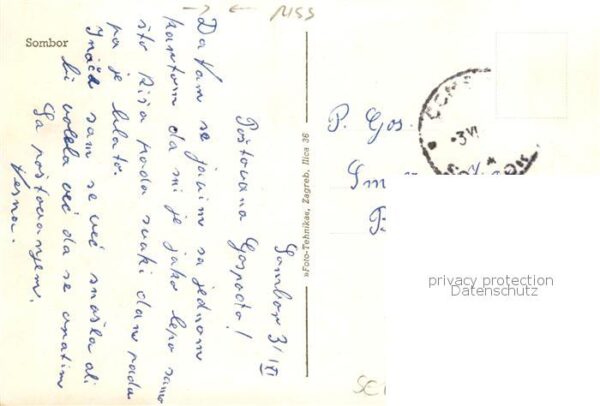 Sombor
→ ← RISS
Sombor 3/VI
Poštovana Gospođo!
Da Vam se javim sa jednom
kartom da mi je jako lepo samo
što kiša pada svaki dan pada
pa je blato.
Inače sam se već snašla ali
bi volela već da se vratim
Sa poštovanjem,
Vesna.
»Foto-Tehnika«, Zagreb, Ilica 36
P. Gos.
3 VI
privacy protection
Datenschutz